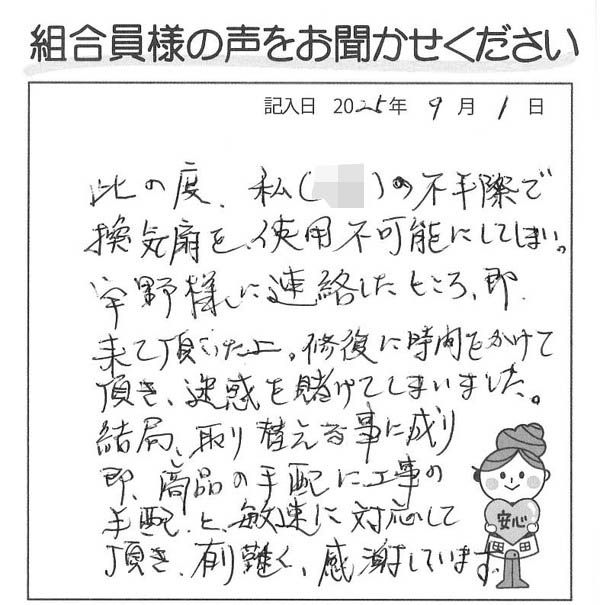 組合員様の声をお聞かせください
記入日 2025年 9月 1日
此の度、私( )の不手際で
換気扇を、使用不可能にしてしまい。
宇野様に連絡したところ、即
来て頂いた上。修復に時間をかけて
頂き、迷惑を賭けてしまいました。
結局、取り替える事に成り
即、商品の手配に工事の
手配と、敏速に対応して
頂き、有難く、感謝しています。
安心